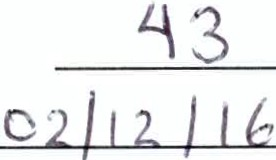 43
02/12/16